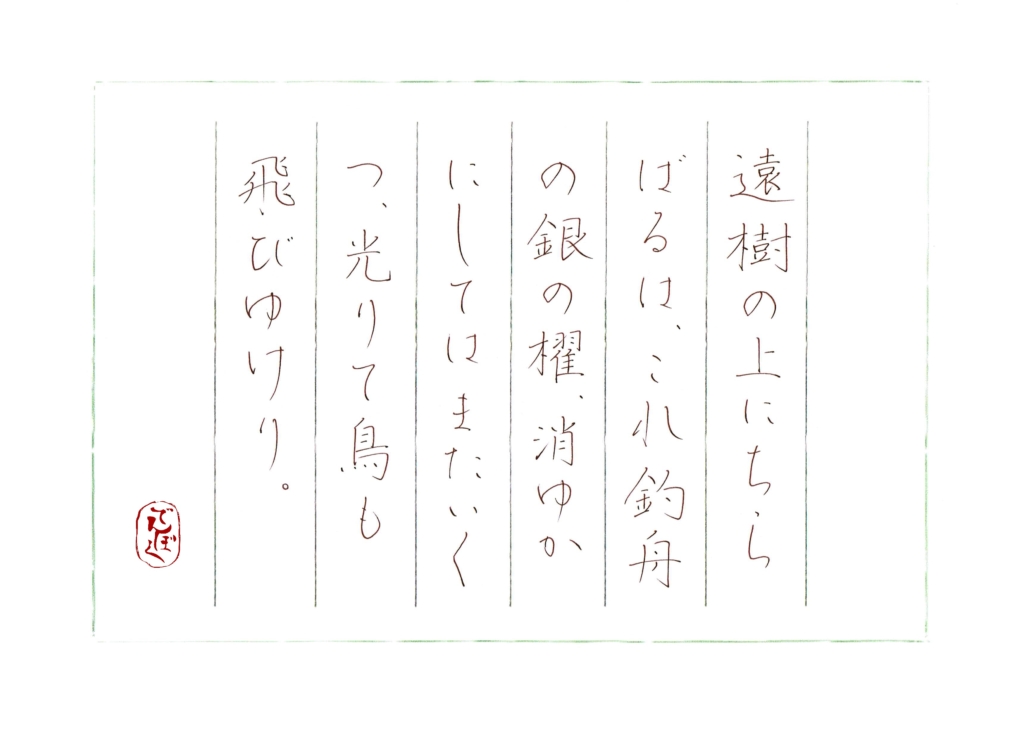 遠樹の上にちら
ばるは、これ釣舟
の銀の櫂、消ゆか
にしてはまたいく
つ、光りて鳥も
飛びゆけり。
でんぼく